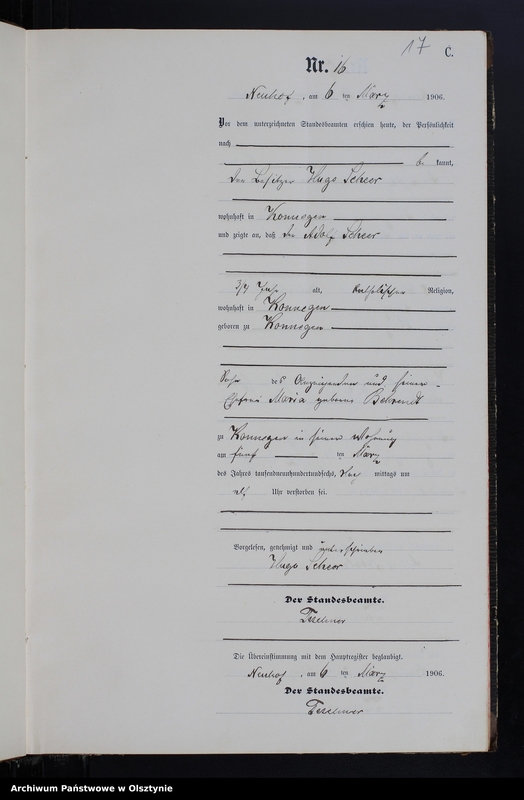 17
C.
Nr. 16
Neuhof, am 6 ten März 1906.
Vor dem unterzeichneten Standesbeamten erschien heute, der Persönlichkeit
nach
be kannt,
der Besitzer Hugo Scheer
wohnhaft in Konnegen
und zeigte an, daß der Adolf Scheer
3/4 Jahr alt, katholischer Religion,
wohnhaft in Konnegen
geboren zu Konnegen
Sohn des Anzeigenden und seiner
Ehefrau Maria geborene Behrendt
zu Konnegen in seiner Wohnung
am fünf ten März
des Jahres tausendneunhundertundsechs, mittags um
elf Uhr verstorben sei.
Vorgelesen, genehmigt und unterschrieben
Hugo Scheer
Der Standesbeamte.
Teschner
Die Übereinstimmung mit dem Hauptregister beglaubigt.
Neuhof, am 6 ten März 1906.
Der Standesbeamte.
Teschner
Archiwum Państwowe w Olsztynie